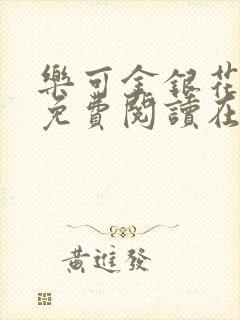 樂可金銀花
免費閱讀在
黃進發